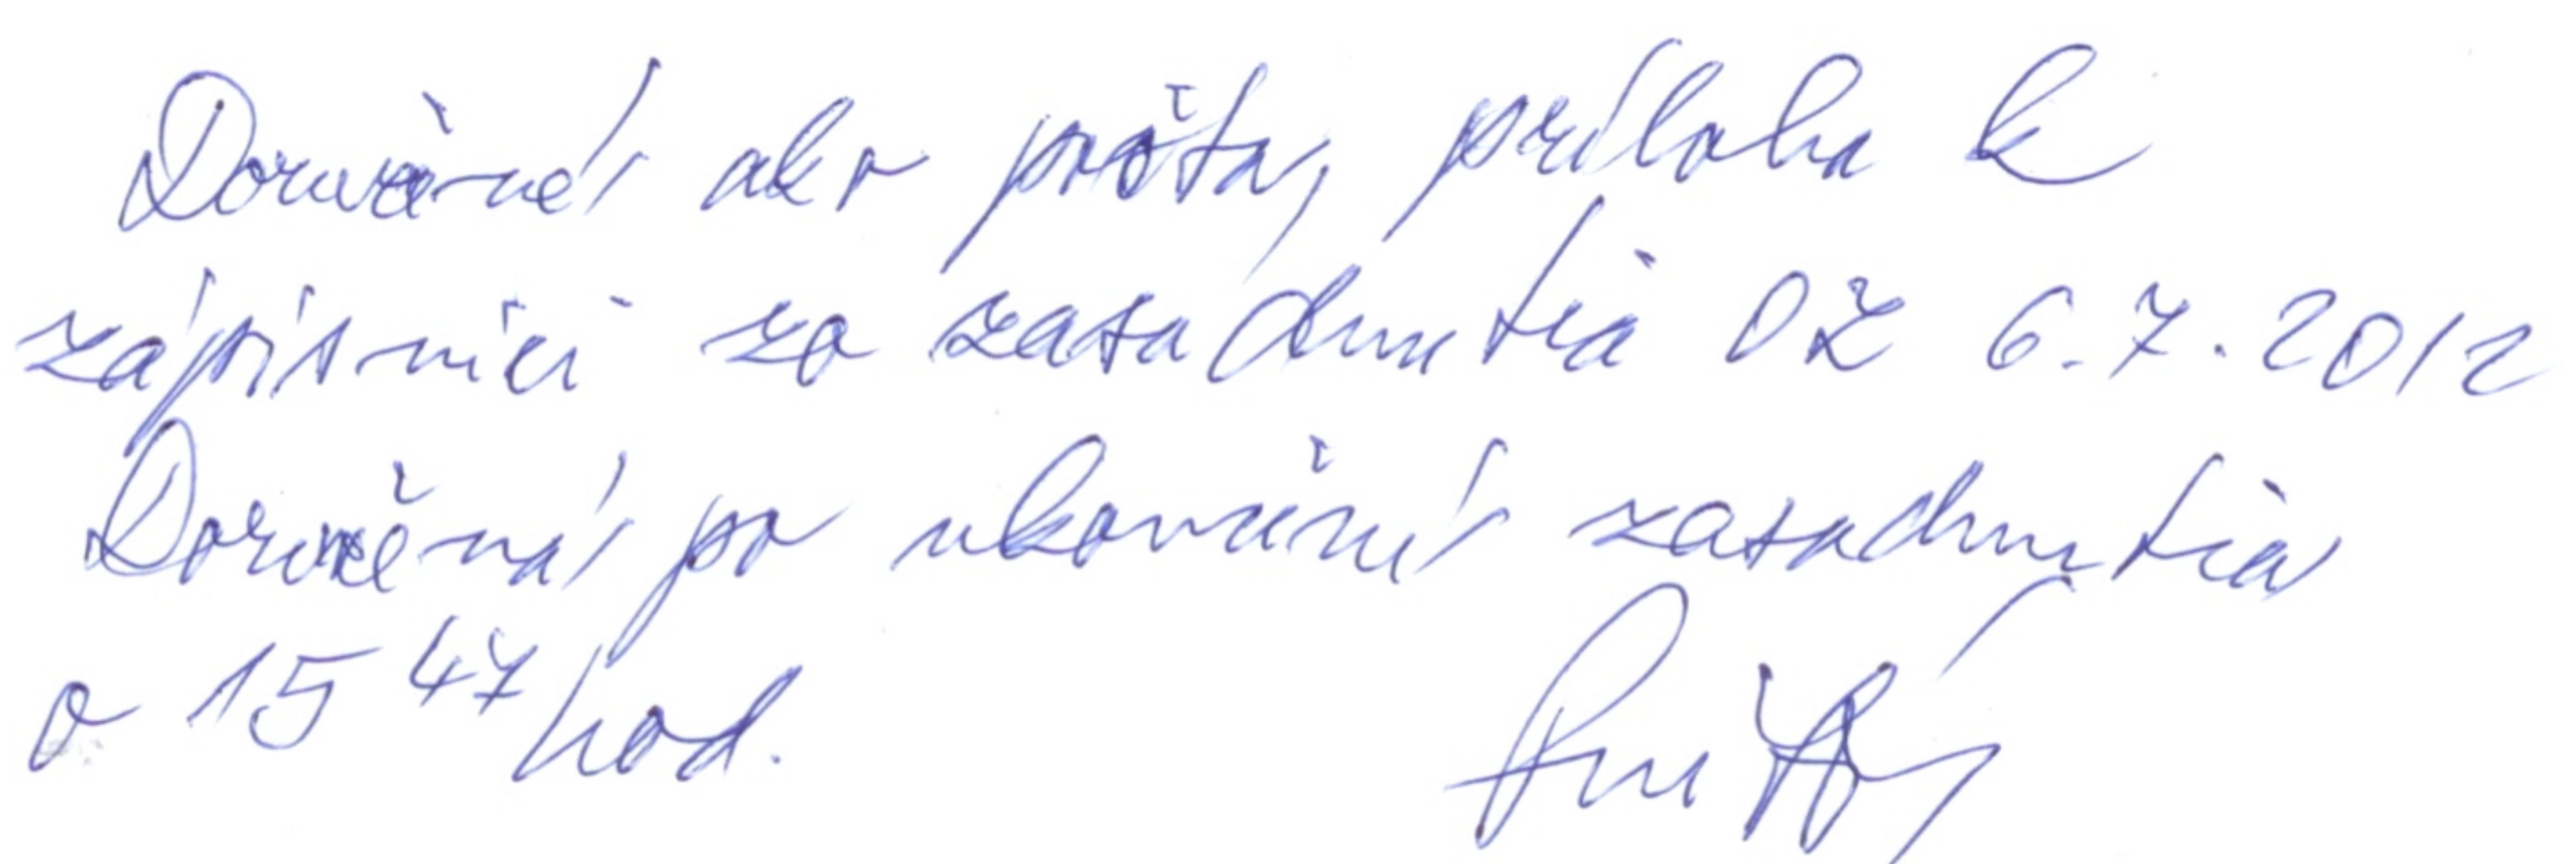 Doručené ako pošta, príloha k
zápisnici zo zasadnutia OZ 6.7.2012
Doručená po ukončení zasadnutia
o 15 47 hod.